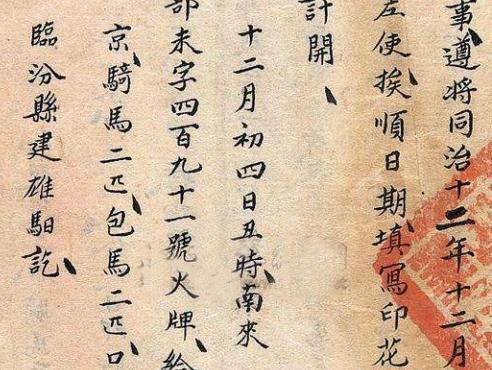 事遵将同治十二年十二月
左使挨順日期填寫印花
計開
十二月初四日丑時南來
部未字四百九十一號火牌給
京騎馬二匹包馬二匹口
臨汾縣建雄馹訖